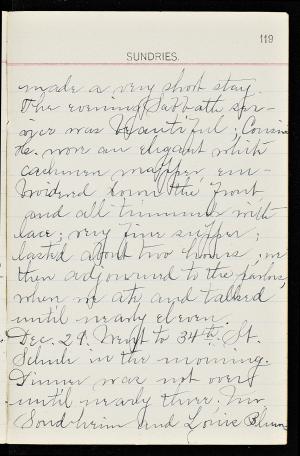 119
SUNDRIES.
made a very short stay.
The evening Sabbath ser-
vice was beautiful; Cousin
He. wore an elegant white
cashmere wrapper, em-
broidered down the front
and all trimmed with
lace; very fine supper;
lasted about two hours, we
then adjourned to the parlor,
when we ate and talked
until nearly eleven.
Dec. 29. Went to 34th St.
Schule in the morning.
Dinner was not over
until nearly three. Mr
Sondheim and Louis Blum